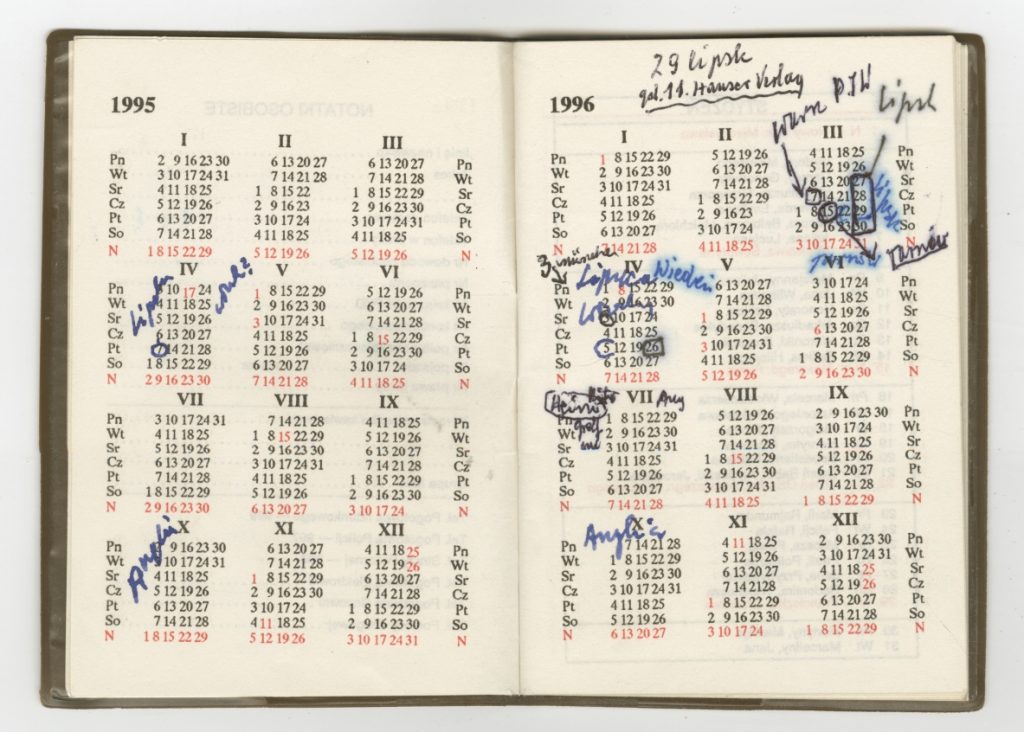 1995
I II III
Pn 2 9 16 23 30 6 13 20 27 6 13 20 27 Pn
Wt 3 10 17 24 31 7 14 21 28 7 14 21 28 Wt
Sr 4 11 18 25 1 8 15 22 1 8 15 22 29 Sr
Cz 5 12 19 26 2 9 16 23 2 9 16 23 30 Cz
Pt 6 13 20 27 3 10 17 24 3 10 17 24 31 Pt
So 7 14 21 28 4 11 18 25 4 11 18 25 So
N 1 8 15 22 29 5 12 19 26 5 12 19 26 N
IV V VI
Lipsk
Pn 3 10 17 24 1 8 15 22 29 5 12 19 26 Pn
Wt 4 11 18 25 2 9 16 23 30 6 13 20 27 Wt
Sr 5 12 19 26 3 10 17 24 31 7 14 21 28 Sr
Cz 6 13 20 27 4 11 18 25 1 8 15 22 29 Cz
Pt 7 14 21 28 5 12 19 26 2 9 16 23 30 Pt
So 1 8 15 22 29 6 13 20 27 3 10 17 24 So
N 2 9 16 23 30 7 14 21 28 4 11 18 25 N
VII VIII IX
Pn 3 10 17 24 31 7 14 21 28 4 11 18 25 Pn
Wt 4 11 18 25 1 8 15 22 29 5 12 19 26 Wt
Sr 5 12 19 26 2 9 16 23 30 6 13 20 27 Sr
Cz 6 13 20 27 3 10 17 24 31 7 14 21 28 Cz
Pt 7 14 21 28 4 11 18 25 1 8 15 22 29 Pt
So 1 8 15 22 29 5 12 19 26 2 9 16 23 30 So
N 2 9 16 23 30 6 13 20 27 3 10 17 24 N
X XI XII
Anglia
Pn 2 9 16 23 30 6 13 20 27 4 11 18 25 Pn
Wt 3 10 17 24 31 7 14 21 28 5 12 19 26 Wt
Sr 4 11 18 25 1 8 15 22 29 6 13 20 27 Sr
Cz 5 12 19 26 2 9 16 23 30 7 14 21 28 Cz
Pt 6 13 20 27 3 10 17 24 1 8 15 22 29 Pt
So 7 14 21 28 4 11 18 25 2 9 16 23 30 So
N 1 8 15 22 29 5 12 19 26 3 10 17 24 31 N
29 Lipsk
god. 11. Hanser Verlag
PIW
Lipsk
1996
I II III
Pn 1 8 15 22 29 5 12 19 26 4 11 18 25 Pn
Wt 2 9 16 23 30 6 13 20 27 5 12 19 26 Wt
Sr 3 10 17 24 31 7 14 21 28 6 13 20 27 Sr
Cz 4 11 18 25 1 8 15 22 29 7 14 21 28 Cz
Pt 5 12 19 26 2 9 16 23 1 8 15 22 29 Pt
So 6 13 20 27 3 10 17 24 2 9 16 23 30 So
N 7 14 21 28 4 11 18 25 3 10 17 24 31 N
Tarnów
IV V VI
Wiedeń
Pn 1 8 15 22 29 6 13 20 27 3 10 17 24 Pn
Wt 2 9 16 23 30 7 14 21 28 4 11 18 25 Wt
Sr 3 10 17 24 1 8 15 22 29 5 12 19 26 Sr
Cz 4 11 18 25 2 9 16 23 30 6 13 20 27 Cz
Pt 5 12 19 26 3 10 17 24 31 7 14 21 28 Pt
So 6 13 20 27 4 11 18 25 1 8 15 22 29 So
N 7 14 21 28 5 12 19 26 2 9 16 23 30 N
VII VIII IX
Pn 1 8 15 22 29 5 12 19 26 2 9 16 23 30 Pn
Wt 2 9 16 23 30 6 13 20 27 3 10 17 24 Wt
Sr 3 10 17 24 31 7 14 21 28 4 11 18 25 Sr
Cz 4 11 18 25 1 8 15 22 29 5 12 19 26 Cz
Pt 5 12 19 26 2 9 16 23 30 6 13 20 27 Pt
So 6 13 20 27 3 10 17 24 31 7 14 21 28 So
N 7 14 21 28 4 11 18 25 1 8 15 22 29 N
X XI XII
Anglia
Pn 7 14 21 28 4 11 18 25 2 9 16 23 30 Pn
Wt 1 8 15 22 29 5 12 19 26 3 10 17 24 31 Wt
Sr 2 9 16 23 30 6 13 20 27 4 11 18 25 Sr
Cz 3 10 17 24 31 7 14 21 28 5 12 19 26 Cz
Pt 4 11 18 25 1 8 15 22 29 6 13 20 27 Pt
So 5 12 19 26 2 9 16 23 30 7 14 21 28 So
N 6 13 20 27 3 10 17 24 1 8 15 22 29 N